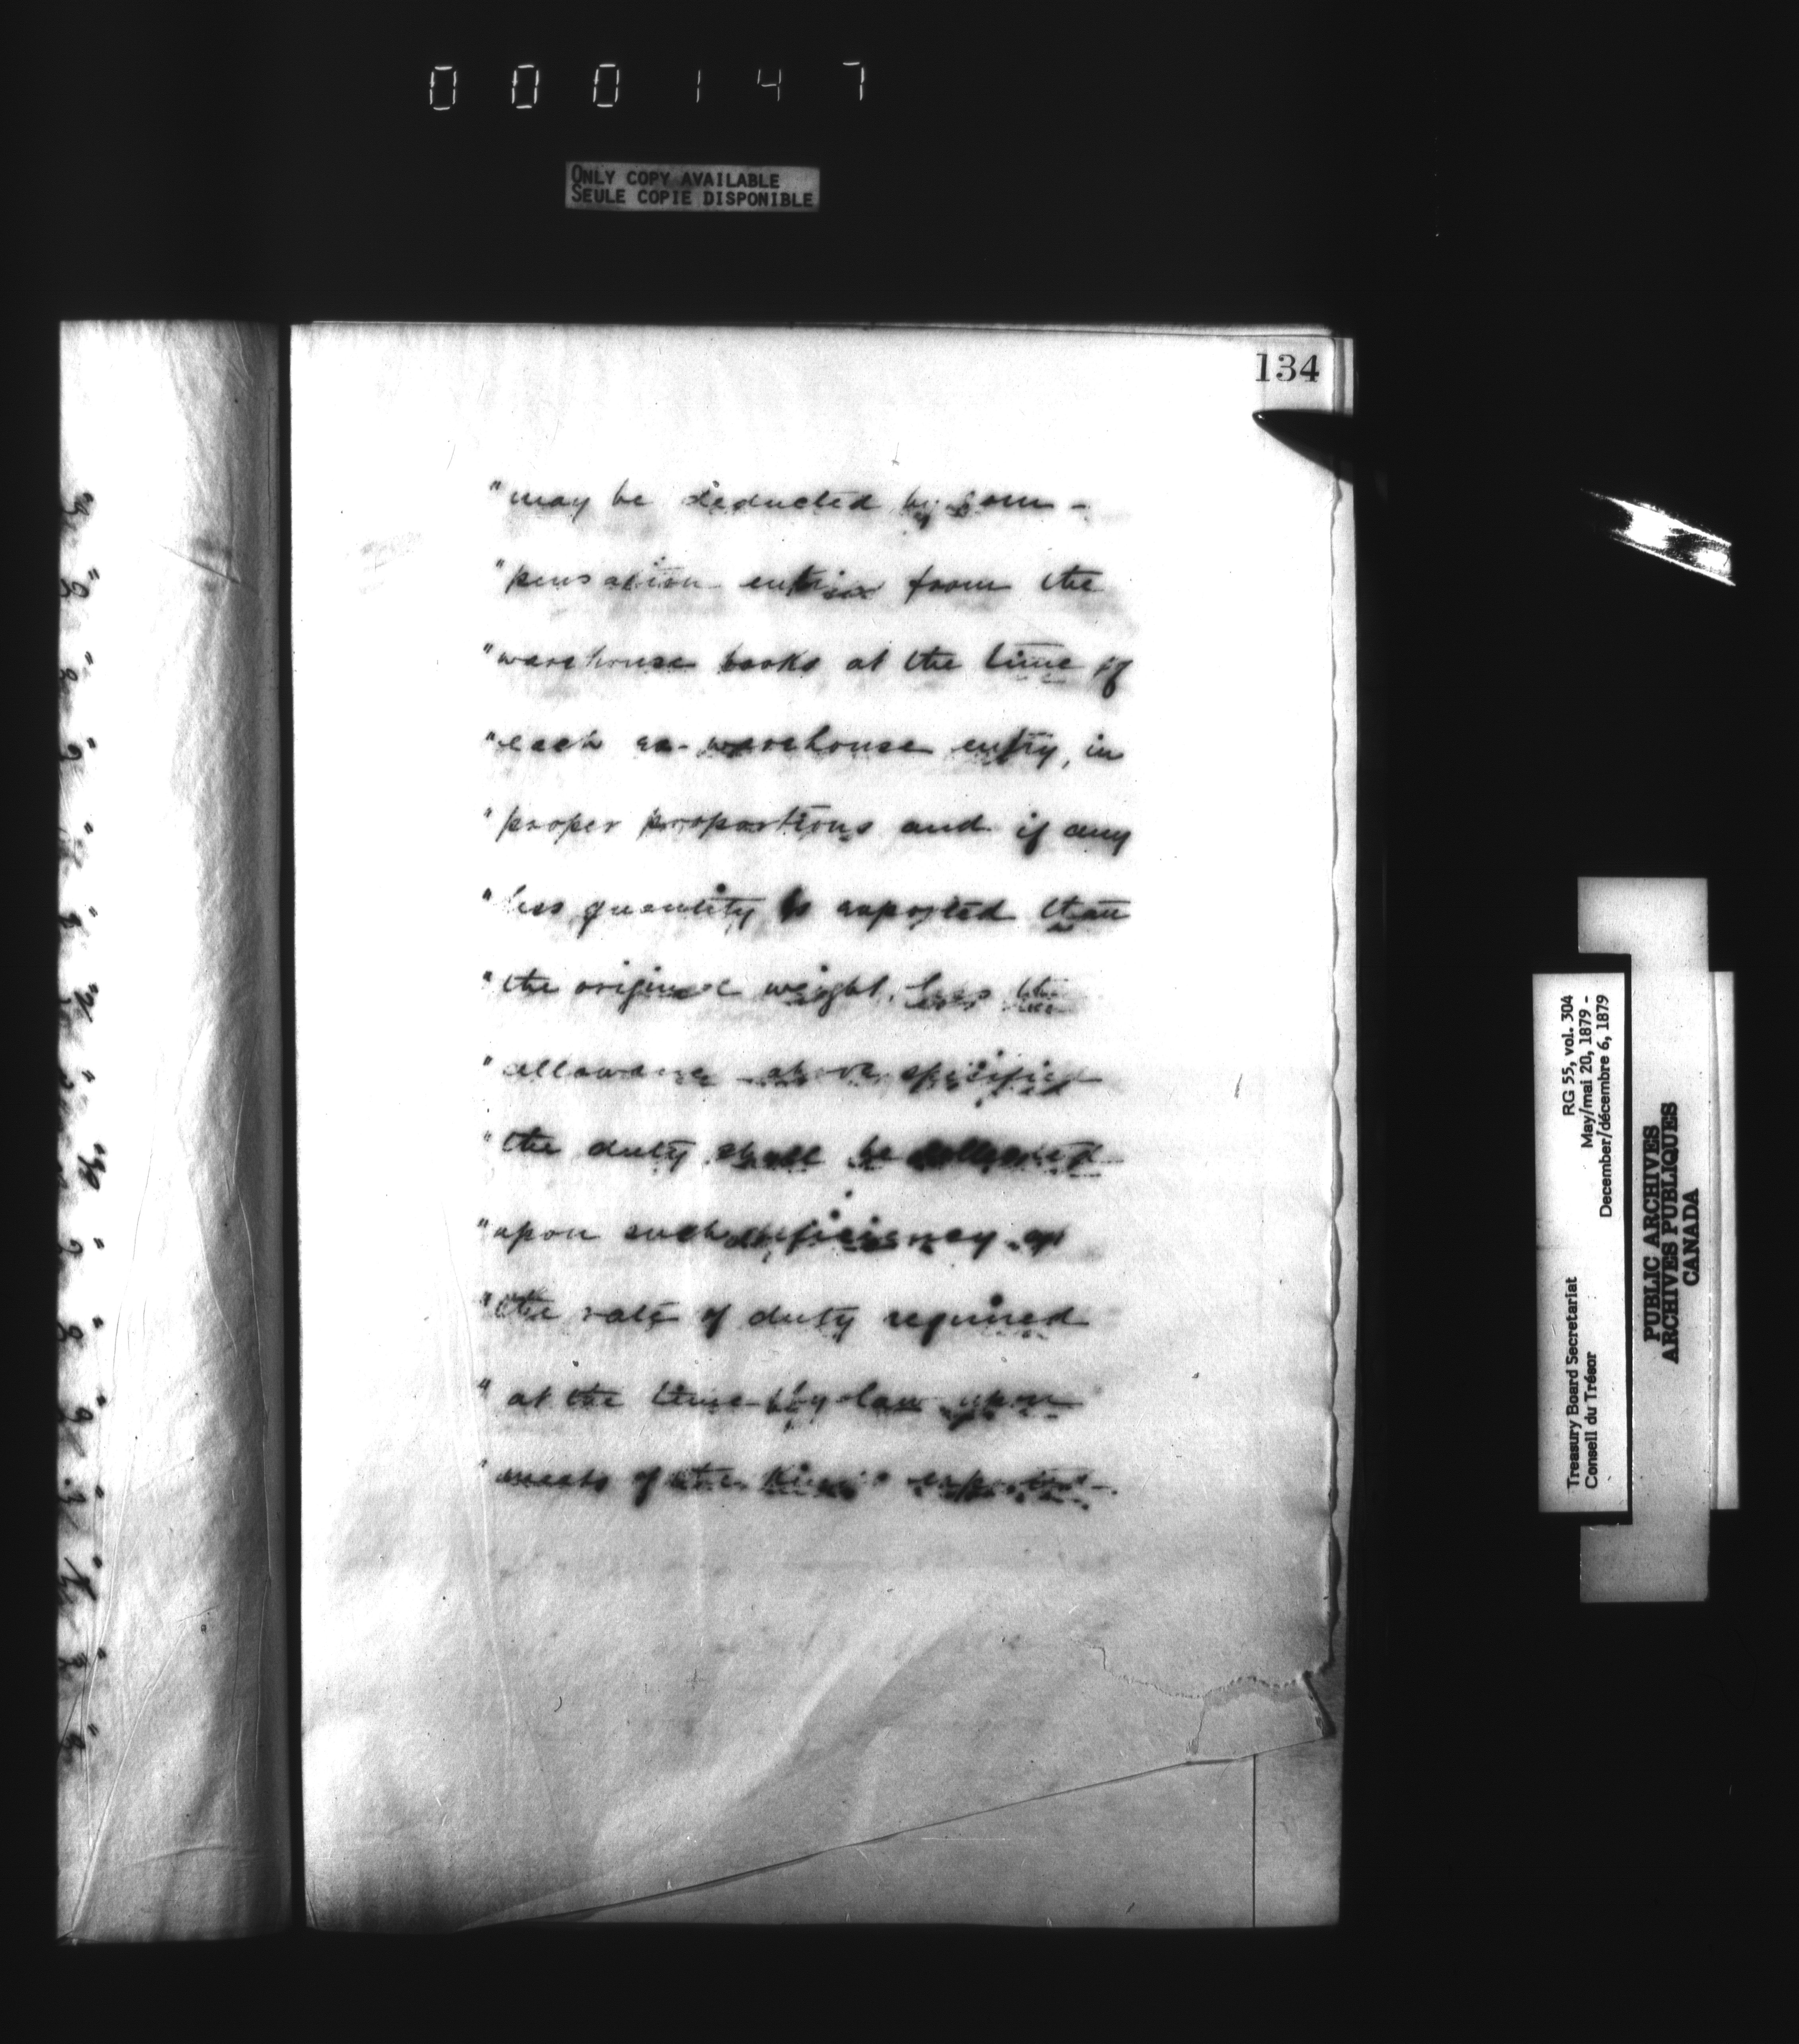 000147
ONLY COPY AVAILABLE
SEULE COPIE DISPONIBLE
134
"may be deducted by com-
"pensation entries from the
"warehouse books at the time of
"each ex-warehouse entry, in
"proper proportions and if any
"less quantity is exported than
"the original weight, less the
"allowance above specified
"the duty shall be collected
"upon such deficiency at
"the rate of duty required
"at the time by law upon
"meats of the kind exported.
Treasury Board Secretariat RG 55, vol. 304
Conseil du Trésor May/mai 20, 1879 -
December/décembre 6, 1879
PUBLIC ARCHIVES
ARCHIVES PUBLIQUES
CANADA